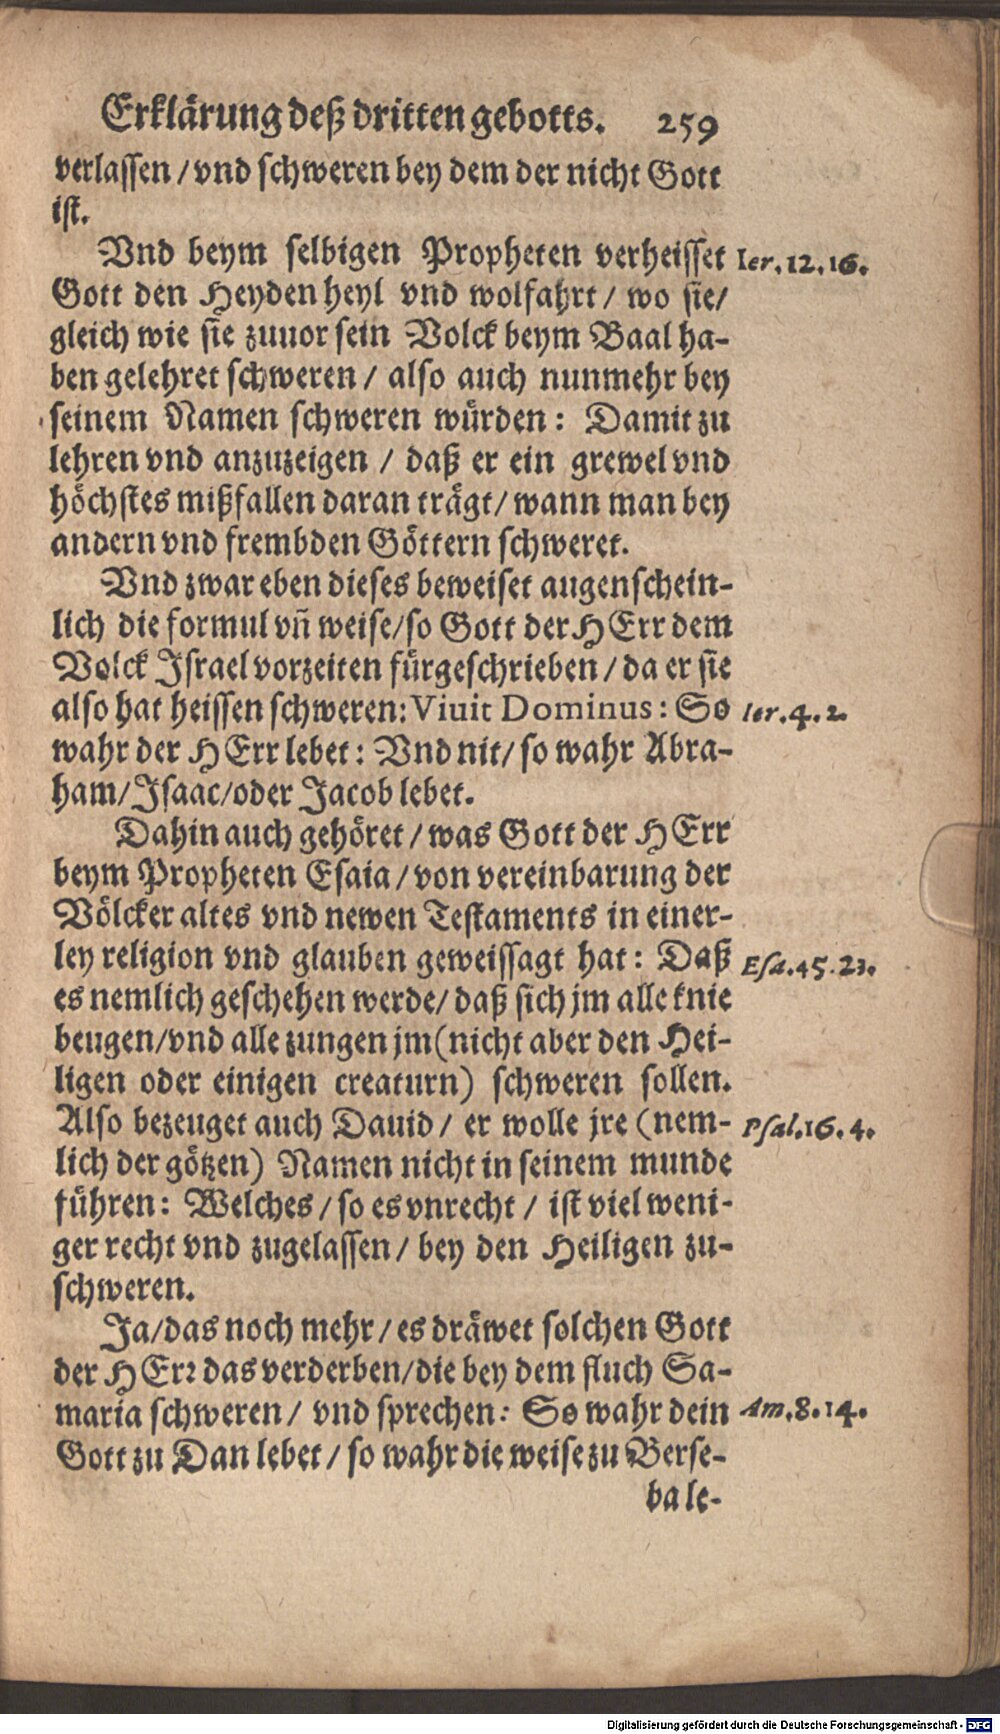 Erklärung deß dritten gebotts. 259
verlassen / vnd schweren bey dem der nicht Gott
ist.
Vnd beym selbigen Propheten verheisset Ier.12.16.
Gott den Heyden heyl vnd wolfahrt / wo sie /
gleich wie sie zuuor sein Volck beym Baal ha-
ben gelehret schweren / also auch nunmehr bey
seinem Namen schweren würden: Damit zu
lehren vnd anzuzeigen / daß er ein grewel vnd
höchstes mißfallen daran trägt / wann man bey
andern vnd frembden Göttern schweret.
Vnd zwar eben dieses beweiset augenschein-
lich die formul vñ weise / so Gott der HErr dem
Volck Israel vorzeiten fürgeschrieben / da er sie
also hat heissen schweren: Viuit Dominus: So Ier.4.2.
wahr der HErr lebet: Vnd nit / so wahr Abra-
ham / Isaac / oder Jacob lebet.
Dahin auch gehöret / was Gott der HErr
beym Propheten Esaia / von vereinbarung der
Völcker altes vnd newen Testaments in einer-
ley religion vnd glauben geweissagt hat: Daß Esa.45.23.
es nemlich geschehen werde / daß sich jm alle knie
beugen / vnd alle zungen jm (nicht aber den Hei-
ligen oder einigen creaturn) schweren sollen.
Also bezeuget auch Dauid / er wolle jre (nem- Psal.16.4.
lich der götzen) Namen nicht in seinem munde
führen: Welches / so es vnrecht / ist viel weni-
ger recht vnd zugelassen / bey den Heiligen zu-
schweren.
Ja / das noch mehr / es dräwet solchen Gott
der HErr das verderben / die bey dem fluch Sa-
maria schweren / vnd sprechen: So wahr dein Am.8.14.
Gott zu Dan lebet / so wahr die weise zu Berse-
ba le-
Digitalisierung gefördert durch die Deutsche Forschungsgemeinschaft - DFG